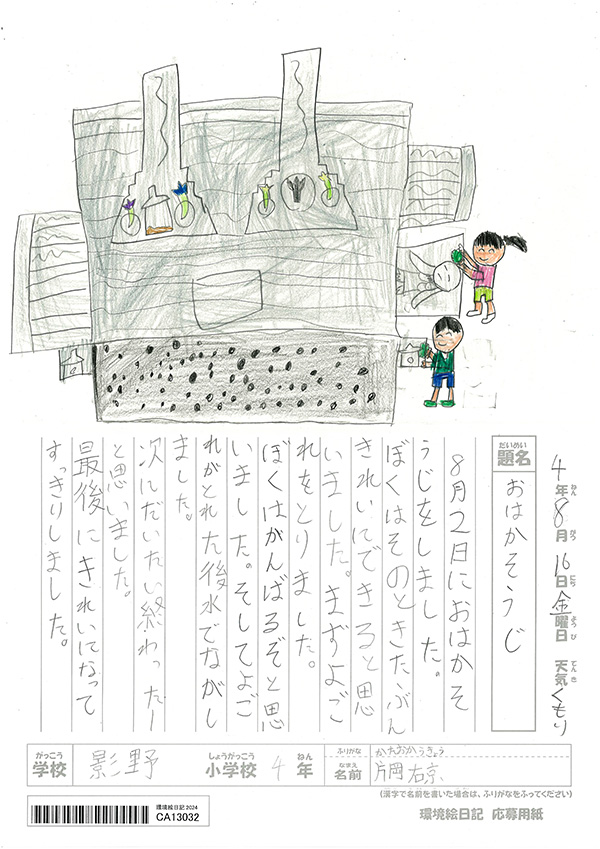 4年8月16日金曜日 天気くもり
だいめい
題名 おはかそうじ
8月2日におはかそ
うじをしました。
ぼくはそのときたぶん
きれいにできると思
いました。まずよご
れをとりました。
ぼくはがんばるぞと思
いました。そしてよご
れがとれた後水でながし
ました。
次にだいたい終わったー
と思いました。
最後にきれいになって
すっきりしました。
がっこう しょうがっこう ねん ふりがな かたおかうきょう
学校 影野 小学校 4年 なまえ 名前 片岡右京
(漢字で名前を書いた場合は、ふりがなをふってください)
環境絵日記 2024
CA13032
環境絵日記 応募用紙